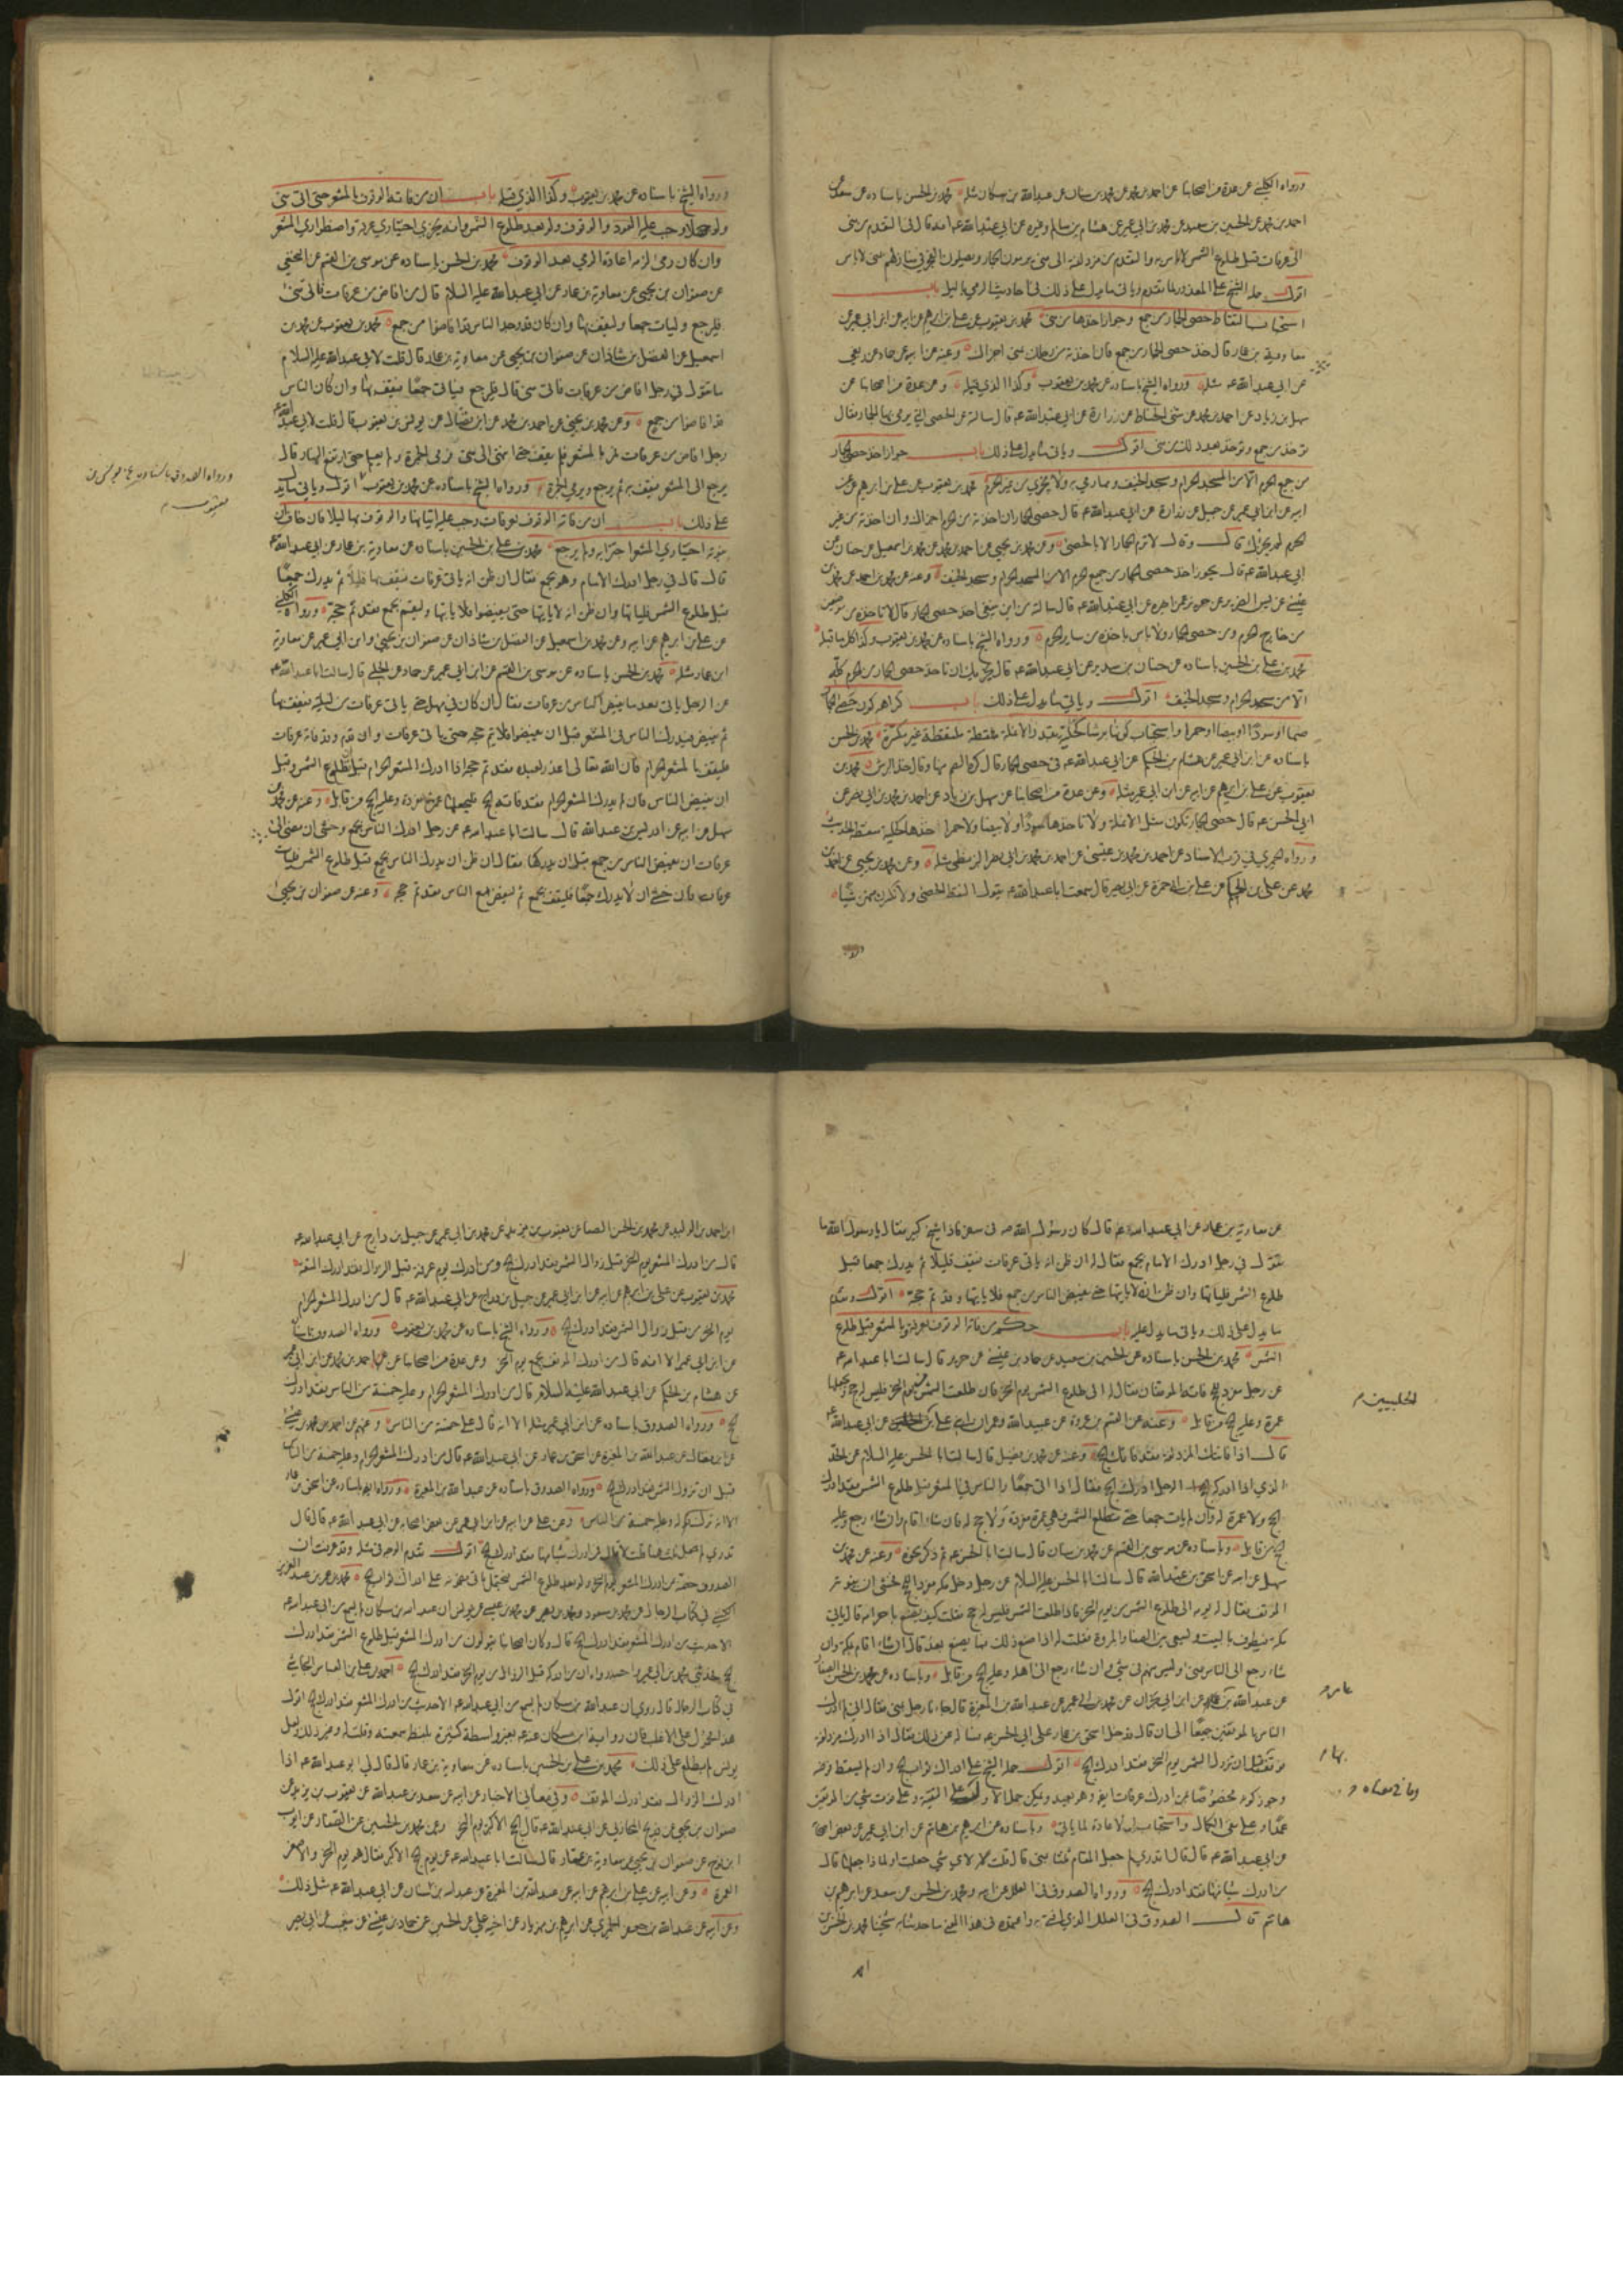 ورواه الكليني عن عدة من اصحابنا عن احمد بن محمد عن محمد بن سنان عن عبدالله بن مسكان مثله محمد بن الحسن باسناده عن سعد عن
احمد بن محمد عن الحسين بن سعيد عن محمد بن ابي عمير عن هشام بن سالم وغيره عن ابي عبدالله ع انه قال في التقدم من منى
الى عرفات قبل طلوع الشمس لا باس به والتقدم من مزدلفة الى منى يرمون الجمار ويصلون الفجر في منازلهم بمنى لا باس
اقول حمله الشيخ على المعذور لما تقدم وياتي ما يدل على ذلك في احاديث الرمي بالليل باب
استحباب التقاط حصى الجمار من جمع وجواز اخذها من منى محمد بن يعقوب عن علي بن ابراهيم عن ابيه عن ابن ابي عمير عن
معاوية بن عمار قال خذ حصى الجمار من جمع فان اخذته من رحلك بمنى اجزاك وعنه عن ابيه عن حماد عن ربعي
عن ابي عبدالله ع مثله ورواه الشيخ باسناده عن محمد بن يعقوب وكذا الذي قبله وعن عدة من اصحابنا عن
سهل بن زياد عن احمد بن محمد عن مثنى الحناط عن زرارة عن ابي عبدالله ع قال سالته عن الحصى التي يرمى بها الجمار فقال
تؤخذ من جمع وتؤخذ بعد ذلك من منى اقول وياتي ما يدل على ذلك باب جواز اخذ حصى الجمار
من جميع الحرم الا من المسجد الحرام ومسجد الخيف ومما رمي به ولا يجزي من غير الحرم محمد بن يعقوب عن علي بن ابراهيم عن
ابيه عن ابن ابي عمير عن جميل عن زرارة عن ابي عبدالله ع قال حصى الجمار ان اخذته من الحرم اجزاك وان اخذته من غير
الحرم لم يجزك قال وقال لا ترم الجمار الا بالحصى وعن محمد بن يحيى عن احمد بن محمد عن محمد بن اسمعيل عن حنان عن
ابي عبدالله ع قال يجوز اخذ حصى الجمار من جميع الحرم الا من المسجد الحرام ومسجد الخيف وعنه عن محمد بن احمد عن محمد بن
عيسى عن يس الضرير عن حريز عمن اخبره عن ابي عبدالله ع قال سالته من اين ينبغي اخذ حصى الجمار قال لا تاخذه من موضعين
من خارج الحرم ومن حصى الجمار ولا باس باخذه من ساير الحرم ورواه الشيخ باسناده عن محمد بن يعقوب وكذا كل ما قبله
محمد بن علي بن الحسين باسناده عن حنان بن سدير عن ابي عبدالله ع قال يجزيك ان تاخذ حصى الجمار من الحرم كله
الا من مسجد الحرام ومسجد الخيف اقول وياتي ما يدل على ذلك باب كراهة كون حصى الجمار
صما او سودا او بيضا او حمرا واستحباب كونها برشا كحلية بقدر الانملة ملتقطة غير مكسرة محمد بن الحسن
باسناده عن ابن ابي عمير عن هشام بن الحكم عن ابي عبدالله ع في حصى الجمار قال كره الصم منها وقال خذ البرش محمد بن
يعقوب عن علي بن ابراهيم عن ابيه عن ابن ابي عمير مثله وعن عدة من اصحابنا عن سهل بن زياد عن احمد بن محمد بن ابي نصر عن
ابي الحسن ع قال حصى الجمار تكون مثل الانملة ولا تاخذها سودا ولا بيضا ولا حمرا خذها كحلية منقطة الحديث
ورواه الحميري في قرب الاسناد عن احمد بن محمد بن عيسى عن احمد بن محمد بن ابي نصر البزنطي مثله وعن محمد بن يحيى عن احمد بن
محمد عن علي بن الحكم عن علي بن ابي حمزة عن ابي بصير قال سمعت ابا عبدالله ع يقول التقط الحصى ولا تكسرن منهن شيئا
ورواه الشيخ باسناده عن محمد بن يعقوب وكذا الذي قبله باب ان من فاته الوقوف بالمشعر حتى اتى منى
ولو جهلا وجب عليه العود والوقوف ولو بعد طلوع الشمس وانه يجزي اختياري عرفة واضطراري المشعر
وان كان رمى لزمه اعادة الرمي بعد الوقوف محمد بن الحسن باسناده عن موسى بن القسم عن النخعي
عن صفوان بن يحيى عن معاوية بن عمار عن ابي عبدالله عليه السلام قال من افاض من عرفات فاتى منى
فليرجع وليات جمعا وليقف بها وان كان قد وجد الناس قد افاضوا من جمع محمد بن يعقوب عن محمد بن
اسمعيل عن الفضل بن شاذان عن صفوان بن يحيى عن معاوية بن عمار قال قلت لابي عبدالله عليه السلام
ما تقول في رجل افاض من عرفات فاتى منى قال فليرجع فياتى جمعا فيقف بها وان كان الناس
قد افاضوا من جمع وعن محمد بن يحيى عن احمد بن محمد عن ابن فضال عن يونس بن يعقوب قال قلت لابي عبدالله ع
رجل افاض من عرفات فمر بالمشعر فلم يقف حتى انتهى الى منى فرمى الجمرة ولم يعلم حتى ارتفع النهار قال
يرجع الى المشعر فيقف به ثم يرجع ويرمي الجمرة ورواه الشيخ باسناده عن محمد بن يعقوب اقول وياتي ما يدل
على ذلك باب ان من فاته الوقوف بعرفات وجب عليه اتيانها والوقوف بها ليلا فان خاف ان
يفوته اختياري المشعر اجتزا به ولم يرجع محمد بن علي بن الحسين باسناده عن معاوية بن عمار عن ابي عبدالله ع
قال قال في رجل ادرك الامام وهو بجمع فقال ان ظن انه ياتي عرفات فيقف بها قليلا ثم يدرك جمعا
قبل طلوع الشمس فلياتها وان ظن انه لا ياتيها حتى يفيضوا فلا ياتها وليقم بجمع فقد تم حجه ورواه الكليني
عن علي بن ابراهيم عن ابيه وعن محمد بن اسمعيل عن الفضل بن شاذان عن صفوان بن يحيى وابن ابي عمير عن معاوية
ابن عمار مثله محمد بن الحسن باسناده عن موسى بن القسم عن ابن ابي عمير عن حماد عن الحلبي قال سالت ابا عبدالله ع
عن الرجل ياتي بعد ما يفيض الناس من عرفات فقال ان كان في مهل حتى ياتي عرفات من ليلته فيقف بها
ثم يفيض فيدرك الناس في المشعر قبل ان يفيضوا فلا يتم حجه حتى ياتي عرفات وان قدم وقد فاته عرفات
فليقف بالمشعر الحرام فان الله تعالى اعذر لعبده فقد تم حجه اذا ادرك المشعر الحرام قبل طلوع الشمس وقبل
ان يفيض الناس فان لم يدرك المشعر الحرام فقد فاته الحج فليجعلها عمرة مفردة وعليه الحج من قابل وعنه عن محمد بن
سهل عن ابيه عن ادريس بن عبدالله قال سالت ابا عبدالله ع عن رجل ادرك الناس بجمع وخشى ان مضى الى
عرفات ان يفيض الناس من جمع قبل ان يدركها فقال ان ظن ان يدرك الناس بجمع قبل طلوع الشمس فليات
عرفات فان خشى ان لا يدرك جمعا فليقف بجمع ثم ليفض مع الناس فقد تم حجه وعنه عن صفوان بن يحيى
ورواه الصدوق باسناده عن يونس بن
يعقوب
عن معاوية بن عمار عن ابي عبدالله ع قال كان رسول الله ص في سفر فاذا شيخ كبير فقال يا رسول الله ما
تقول في رجل ادرك الامام بجمع فقال له ان ظن انه ياتي عرفات فيقف قليلا ثم يدرك جمعا قبل
طلوع الشمس فلياتها وان ظن انه لا ياتيها حتى يفيض الناس من جمع فلا ياتها وقد تم حجه اقول وتقدم
ما يدل على ذلك وياتي ما يدل عليه باب حكم من فاته الوقوف بعرفة وبالمشعر قبل طلوع
الشمس محمد بن الحسن باسناده عن الحسين بن سعيد عن حماد بن عيسى عن حريز قال سالت ابا عبدالله ع
عن رجل مفرد للحج فاته الموقفان فقال له الى طلوع الشمس يوم النحر فان طلعت الشمس من يوم النحر فليس له حج ويجعلها
عمرة وعليه الحج من قابل وعنه عن القسم بن عروة عن عبيدالله وعمران ابني علي عن ابي عبدالله ع
الحلبيين
قال اذا فاتتك المزدلفة فقد فاتك الحج وعنه عن محمد بن فضيل قال سالت ابا الحسن عليه السلام عن الحد
الذي اذا ادركه الرجل ادرك الحج فقال اذا اتى جمعا والناس في المشعر قبل طلوع الشمس فقد ادرك
الحج ولا عمرة له وان لم يات جمعا حتى تطلع الشمس فهي عمرة مفردة ولا حج له فان شاء اقام وان شاء رجع وعليه
الحج من قابل وباسناده عن موسى بن القسم عن محمد بن سنان قال سالت ابا الحسن ع ثم ذكر نحوه وعنه عن محمد بن
سهل عن ابيه عن اسحق بن عبدالله قال سالت ابا الحسن عليه السلام عن رجل دخل مكة مفردا للحج فخشى ان يفوته
الموقف فقال له يومه الى طلوع الشمس من يوم النحر فاذا طلعت الشمس فليس له حج فقلت كيف يصنع باحرامه قال ياتي
مكة فيطوف بالبيت ويسعى بين الصفا والمروة فقلت له اذا صنع ذلك فما يصنع بعد قال ان شاء اقام بمكة وان
شاء رجع الى الناس بمنى وليس منهم في شيء وان شاء رجع الى اهله وعليه الحج من قابل وباسناده عن محمد بن الحسن الصفار
عن عبدالله بن عامر عن ابن ابي نجران عن محمد بن ابي عمير عن عبدالله بن المغيرة قال جاءنا رجل بمنى فقال اني لم ادرك
عامر
الناس بالموقفين جميعا الى ان قال فدخل اسحق بن عمار على ابي الحسن ع فساله عن ذلك فقال اذا ادرك مزدلفة
فوقف بها قبل ان تزول الشمس يوم النحر فقد ادرك الحج اقول حمله الشيخ على ادراك ثواب الحج وان لم يسقط فرضه
بها
وما في معناه
عن ابي عبدالله ع قال قال تدري لم جعل المقام ثلثا بمنى قال قلت لاي شيء جعلت او لماذا جعلت قال
من ادرك شيئا منها فقد ادرك الحج ورواه الصدوق في العلل عن ابيه ومحمد بن الحسن عن سعد عن ابراهيم بن
هاشم قال الصدوق في العلل الذي افتي به واعتمده في هذا المعنى ما حدثنا به شيخنا محمد بن الحسن بن
ابن احمد بن الوليد عن محمد بن الحسن الصفار عن يعقوب بن يزيد عن محمد بن ابي عمير عن جميل بن دراج عن ابي عبدالله ع
قال من ادرك المشعر يوم النحر قبل زوال الشمس فقد ادرك الحج ومن ادرك يوم عرفة قبل الزوال فقد ادرك المتعة
محمد بن يعقوب عن علي بن ابراهيم عن ابيه عن ابن ابي عمير عن جميل بن دراج عن ابي عبدالله ع قال من ادرك المشعر الحرام
يوم النحر من قبل زوال الشمس فقد ادرك الحج ورواه الشيخ باسناده عن محمد بن يعقوب ورواه الصدوق باسناده
عن ابن ابي عمير الا انه قال من ادرك الموقف بجمع يوم النحر وعن عدة من اصحابنا عن احمد بن محمد عن ابن ابي عمير
عن هشام بن الحكم عن ابي عبدالله عليه السلام قال من ادرك المشعر الحرام وعليه خمسة من الناس فقد ادرك
الحج ورواه الصدوق باسناده عن ابن ابي عمير مثله الا انه قال على خمسة من الناس وعنهم عن احمد بن محمد بن عيسى
عن ابن فضال عن عبدالله بن المغيرة عن اسحق بن عمار عن ابي عبدالله ع قال من ادرك المشعر الحرام وعليه خمسة من الناس
قبل ان تزول الشمس فقد ادرك الحج ورواه الصدوق باسناده عن عبدالله بن المغيرة ورواه ايضا باسناده عن اسحق بن عمار
الا انه ترك قوله وعليه خمسة من الناس وعن علي عن ابيه عن ابن ابي عمير عن بعض اصحابه عن ابي عبدالله ع قال قال
تدري لم جعل ثلث هنا قلت لا قال فمن ادرك شيئا منها فقد ادرك الحج اقول تقدم الوجه في مثله وقد عرفت ان
الكشي في كتاب الرجال عن محمد بن مسعود ومحمد بن نصير عن محمد بن عيسى عن يونس ان عبدالله بن مسكان لم يسمع من ابي عبدالله ع
الا حديث من ادرك المشعر فقد ادرك الحج قال وكان اصحابنا يقولون من ادرك المشعر قبل طلوع الشمس فقد ادرك
الحج فحدثني محمد بن ابي عمير واحسبه رواه ان من ادركه قبل الزوال من يوم النحر فقد ادرك الحج احمد بن علي بن العباس النجاشي
في كتاب الرجال قال روي ان عبدالله بن مسكان لم يسمع من ابي عبدالله ع الا حديث من ادرك المشعر فقد ادرك الحج اقول
يونس لم يطلع على ذلك محمد بن علي بن الحسين باسناده عن معاوية بن عمار قال قال لي ابو عبدالله ع اذا
ادرك الزوال فقد ادرك الموقف وفي معاني الاخبار عن ابيه عن سعد بن عبدالله عن يعقوب بن يزيد عن
صفوان بن يحيى عن ذريح المحاربي عن ابي عبدالله ع قال الحج الاكبر يوم النحر وعن محمد بن الحسن عن الصفار عن ايوب
ابن نوح عن صفوان بن يحيى عن معاوية بن عمار قال سالت ابا عبدالله ع عن يوم الحج الاكبر فقال هو يوم النحر والاصغر
العمرة وعن ابيه عن علي بن ابراهيم عن ابيه عن عبدالله بن المغيرة عن عبدالله بن سنان عن ابي عبدالله ع مثل ذلك
وعن ابيه عن عبدالله بن جعفر الحميري عن ابراهيم بن مهزيار عن اخيه علي عن الحسين عن حماد بن عيسى عن شعيب عن ابي بصير